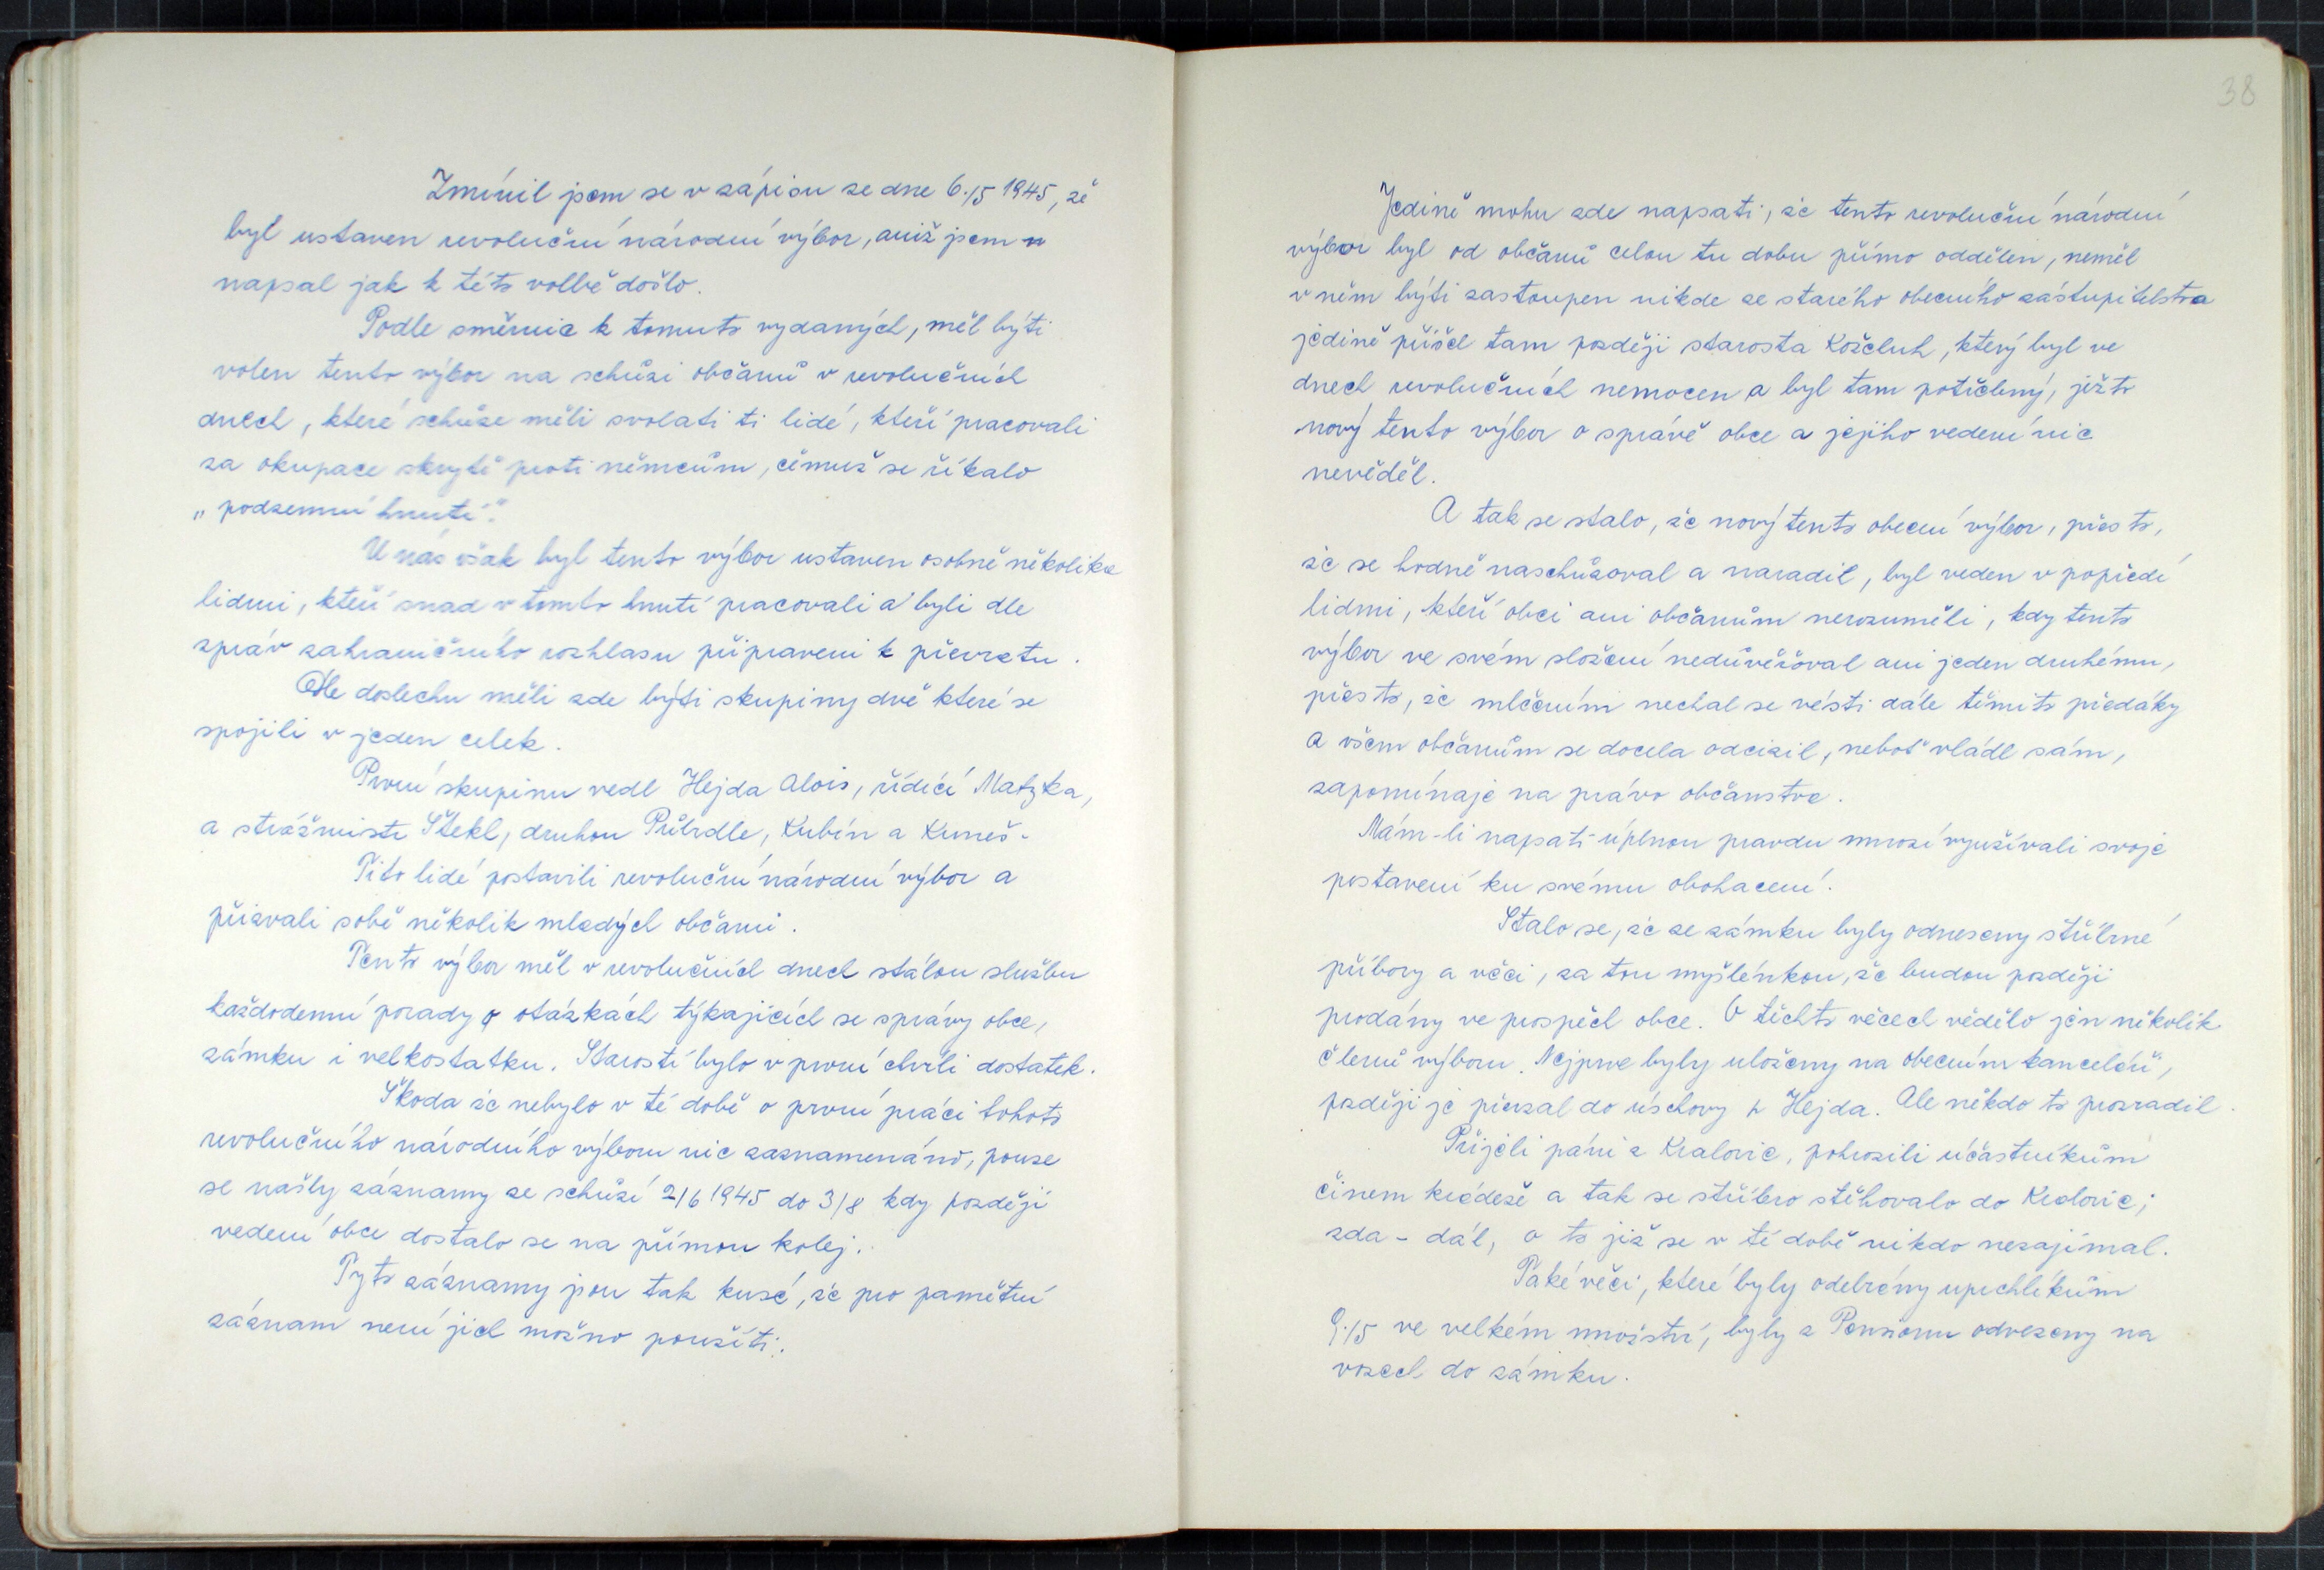 Zmínil jsem se v zápisu ze dne 6./5 1945, že
byl ustaven revoluční národní výbor, aniž jsem
napsal jak k této volbě došlo.
Podle směrnic k tomuto vydaných, měl býti
volen tento výbor na schůzi občanů v revolučních
dnech, které schůze měli svolati ti lidé, kteří pracovali
za okupace skrytě proti němcům, čemuž se říkalo
„podzemní hnutí".
U nás však byl tento výbor ustaven osobně několika
lidmi, kteří snad v tomto hnutí pracovali a byli dle
zpráv zahraničního rozhlasu připraveni k převratu.
Dle doslechu měli zde býti skupiny dvě které se
spojili v jeden celek.
První skupinu vedl Hejda Alois, řídící Matzka,
a strážmistr Štekl, druhou Průrdle, Kubín a Kuneš.
Tito lidé postavili revoluční národní výbor a
přizvali sobě několik mladých občanů.
Tento výbor měl v revolučních dnech stálou službu
každodenní porady o otázkách týkajících se správy obce,
zámku i velkostatku. Starostí bylo v první chvíli dostatek.
Škoda že nebylo v té době o první práci tohoto
revolučního národního výboru nic zaznamenáno, pouze
se našly záznamy ze schůzí 2/6 1945 do 3/8 kdy později
vedení obce dostalo se na přímou kolej.
Tyto záznamy jsou tak kusé, že pro pamětní
záznam není jich možno použíti.
38
Jedině mohu zde napsati, že tento revoluční národní
výbor byl od občanů celou tu dobu přímo oddělen, neměl
v něm býti zastoupen nikde ze starého obecního zástupitelstva
jedině přišel tam později starosta Koželuh, který byl ve
dnech revolučních nemocen a byl tam potřebný, ježto
nový tento výbor o správě obce a jejího vedení nic
nevěděl.
A tak se stalo, že nový tento obecní výbor, přes to,
že se hodně naschůzoval a naradil, byl veden v popředí
lidmi, kteří obci ani občanům nerozuměli, kdy tento
výbor ve svém složení nedůvěřoval ani jeden druhému,
přes to, že mlčením nechal se vésti dále těmito předáky
a všem občanům se docela odcizil, neboť vládl sám,
zapomínaje na právo občanstva.
Mám-li napsati úplnou pravdu mnozí využívali svoje
postavení ku svému obohacení.
Stalo se, že ze zámku byly odneseny stříbrné
příbory a věci, za tou myšlénkou, že budou později
prodány ve prospěch obce. O těchto věcech vědělo jen několik
členů výboru. Nejprve byly uloženy na obecním kanceláři,
později je převzal do úschovy p. Hejda. Ale někdo to prozradil.
Přijeli páni z Kralovic, pohrozili účastníkům
činem krádeže a tak se stříbro stěhovalo do Kralovic;
zda - dál, o to již se v té době nikdo nezajímal.
Také věci, které byly odebrány uprchlíkům
9./5 ve velkém množství, byly z Pensionu odvezeny na
vozech do zámku.